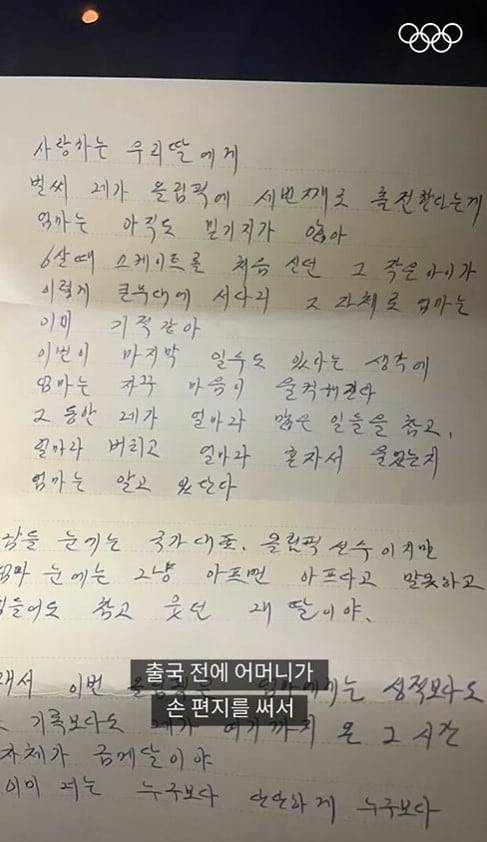 사랑하는 우리딸에게
벌써 레가 올림픽에 세번째로 출전한다는게
엄마는 아직도 믿기지가 않아
6살때 스케이트를 처음 신던 그 작은아이가
이렇게 큰무대에 서다니 그 자체로 엄마는
이미 기적같아
이번이 마지막 일수도 있다는 생각에
엄마는 자꾸 마음이 울컥해진다
그 동안 레가 얼마나 많은 일들을 참고,
얼마나 버티고 얼마나 혼자서 울었는지
엄마는 알고 있단다
람들 눈에는 국가대표, 올림픽 선수이지만
엄마 눈에는 그냥 아프면 아프다고 말못하고
힘들어도 참고 웃던 내 딸이야.
래서 이번 올림픽은 성적보다도
출국 전에 어머니가
기록보다도 여기까지 온 그 시간
손 편지를 써서
자체가 금메달이야
이미 너는 누구보다 단단하게 누구보다